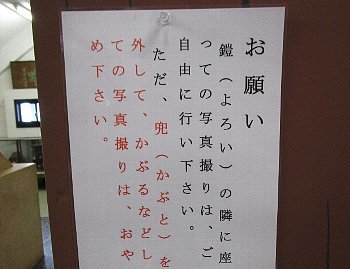 お願い
鎧（よろい）の隣に座
っての写真撮りは、ご
自由に行い下さい。
ただ、兜（かぶと）を
外して、かぶるなどし
ての写真撮りは、おや
め下さい。